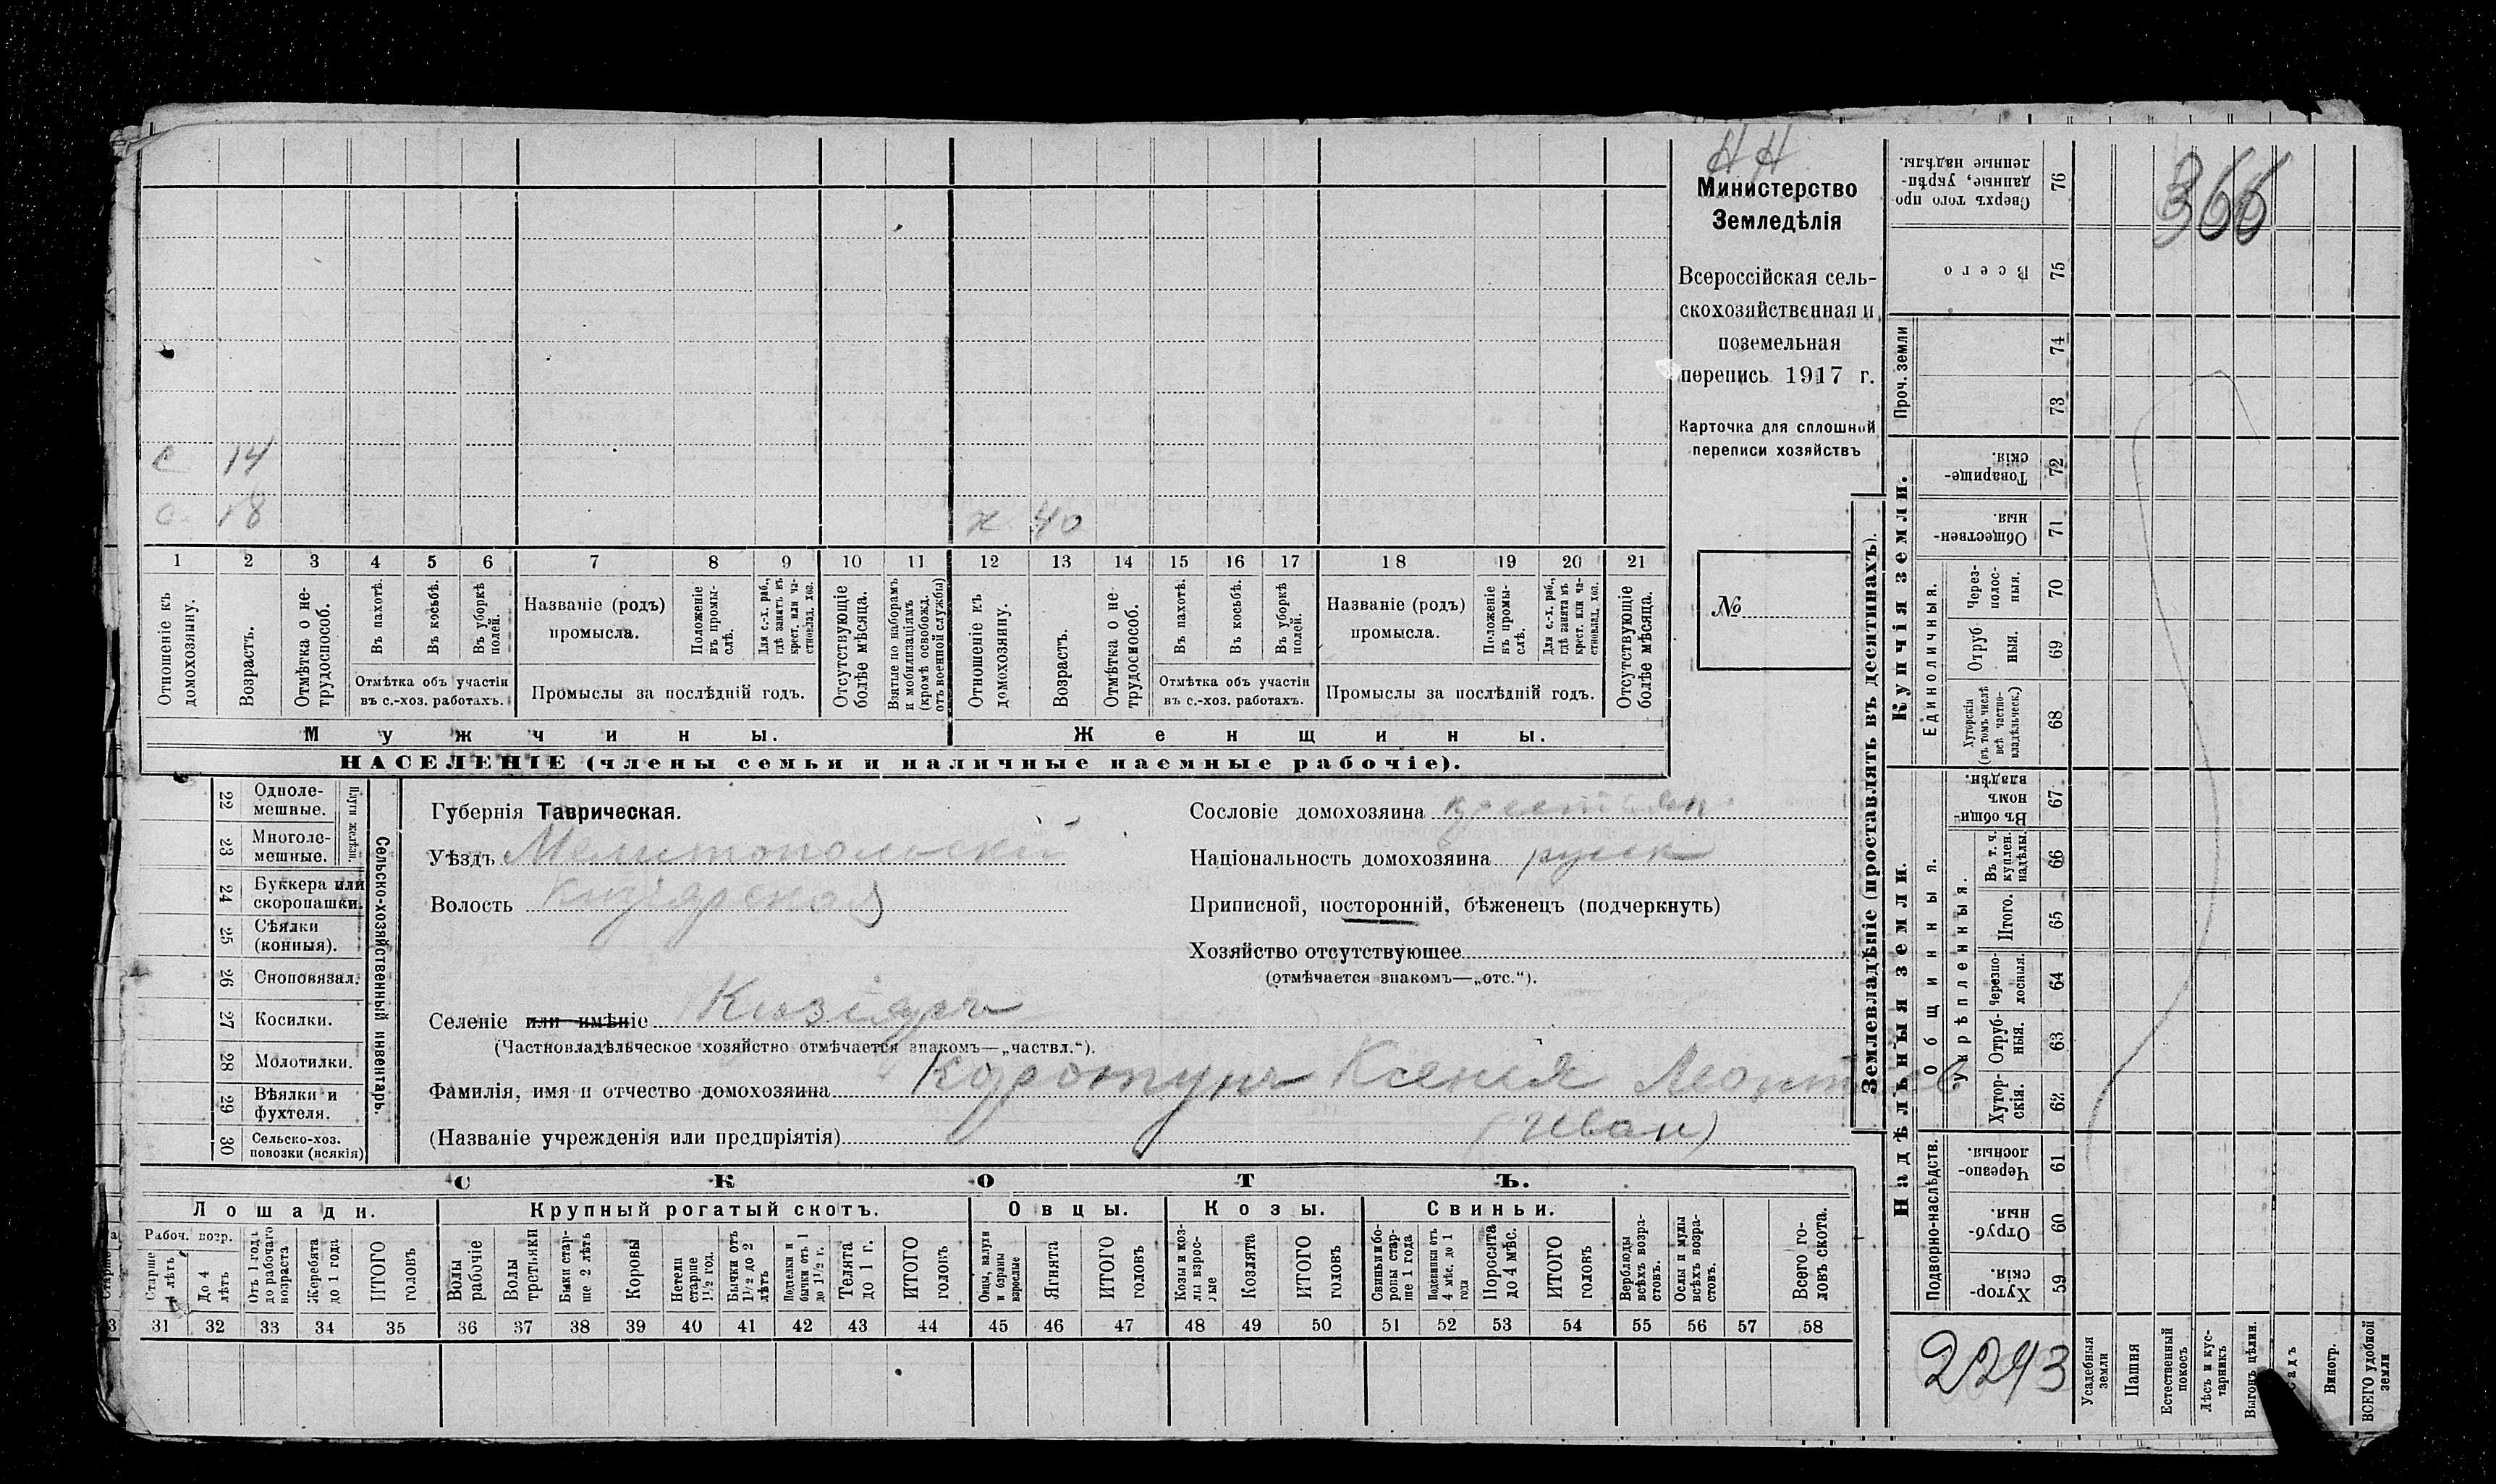 НН
Министерство
Земледѣлія
Всероссійская сель-
скохозяйственная и
поземельная
перепись 1917 г.
Карточка для сплошной
переписи хозяйствъ
№
с 14
с. 18
х 40
1 2 3 4 5 6 7 8 9 10 11 12 13 14 15 16 17 18 19 20 21
Отношеніе къ домохозяину.
Возрастъ.
Отмѣтка о не-трудоспособ.
Въ пахотѣ.
Въ косьбѣ.
Въ уборкѣ полей.
Отмѣтка объ участіи
въ с.-хоз. работахъ.
Названіе (родъ)
промысла.
Положеніе въ промы-слѣ.
Для с.-х. раб., гдѣ занятъ въ крест. или ча-стновлад. хоз.
Промыслы за послѣдній годъ.
Отсутствующіе болѣе мѣсяца.
Взятые по наборамъ и мобилизаціямъ (кромѣ освобожд. отъ военной службы)
Отношеніе къ домохозяину.
Возрастъ.
Отмѣтка о не-трудоспособ.
Въ пахотѣ.
Въ косьбѣ.
Въ уборкѣ полей.
Отмѣтка объ участіи
въ с.-хоз. работахъ.
Названіе (родъ)
промысла.
Положеніе въ промы-слѣ.
Для с.-х. раб., гдѣ занята въ крест. или ча-стновлад. хоз.
Промыслы за послѣдній годъ.
Отсутствующіе болѣе мѣсяца.
Мужчины.
Женщины.
НАСЕЛЕНІЕ (члены семьи и наличные наемные рабочіе).
Сельско-хозяйственный инвентарь.
Плуги желѣзн.
22 Одноле-мешные.
23 Многоле-мешные.
24 Буккера или скоропашки.
25 Сѣялки (конныя).
26 Сноповязал.
27 Косилки.
28 Молотилки.
29 Вѣялки и фухтеля.
30 Сельско-хоз. повозки (всякія)
Губернія Таврическая.
Уѣздъ Мелитопольскій
Волость Кизіярская
Сословіе домохозяина крестьян.
Національность домохозяина русск
Приписной, посторонній, бѣженецъ (подчеркнуть)
Хозяйство отсутствующее
(отмѣчается знакомъ—„отс.“).
Селеніе или имѣніе Кизіяръ
(Частновладѣльческое хозяйство отмѣчается знакомъ—„частвл.“).
Фамилія, имя и отчество домохозяина Коротунъ Ксенія Леонтьев
(Названіе учрежденія или предпріятія) (Иван)
СКОТЪ.
Лошади.
Крупный рогатый скотъ.
Овцы.
Козы.
Свиньи.
Рабоч. возр.
Старше 4 лѣтъ
До 4 лѣтъ
Отъ 1 года до рабочаго возраста
Жеребята до 1 года
ИТОГО головъ
Волы рабочіе
Волы третьяки
Быки стар-ше 2 лѣтъ
Коровы
Нетели старше 1½ год.
Бычки отъ 1½ до 2 лѣтъ
Подтелки и бычки отъ 1 до 1½ г.
Телята до 1 г.
ИТОГО головъ
Овцы, валухи и бараны взрослые
Ягнята
ИТОГО головъ
Козы и коз-лы взрос-лые
Козлята
ИТОГО головъ
Свиньи и бо-ровы стар-ше 1 года
Подсвинки отъ 4 мѣс. до 1 года
Поросята до 4 мѣс.
ИТОГО головъ
Верблюды всѣхъ возра-стовъ.
Ослы и мулы всѣхъ возра-стовъ.
Всего го-ловъ скота.
31 32 33 34 35 36 37 38 39 40 41 42 43 44 45 46 47 48 49 50 51 52 53 54 55 56 57 58
Землевладѣніе (проставлять въ десятинахъ).
366
76 Сверхъ того про-данные, укрѣп-ленные надѣлы.
75 Всего
Проч. земли
74
73
Купчія земли.
72 Товарище-скія.
71 Обществен-ныя.
Единоличныя.
70 Через-полос-ныя.
69 Отруб-ныя.
68 Хуторскія (въ томъ числѣ всѣ частно-владѣльческ.)
Надѣльныя земли.
Общинныя.
67 Въ общи-номъ владѣн.
Укрѣпленныя.
66 Въ т. ч. куплен. надѣлы.
65 Итого.
64 Черезпо-лосныя.
63 Отруб-ныя.
62 Хутор-скія.
Подворно-наслѣдств.
61 Черезпо-лосныя.
60 Отруб-ныя.
59 Хутор-скія.
2293
Усадебныя земли
Пашня
Естественный покосъ
Лѣсъ и кус-тарникъ
Выгонъ цѣлин.
садъ
Виногр.
ВСЕГО удобной земли